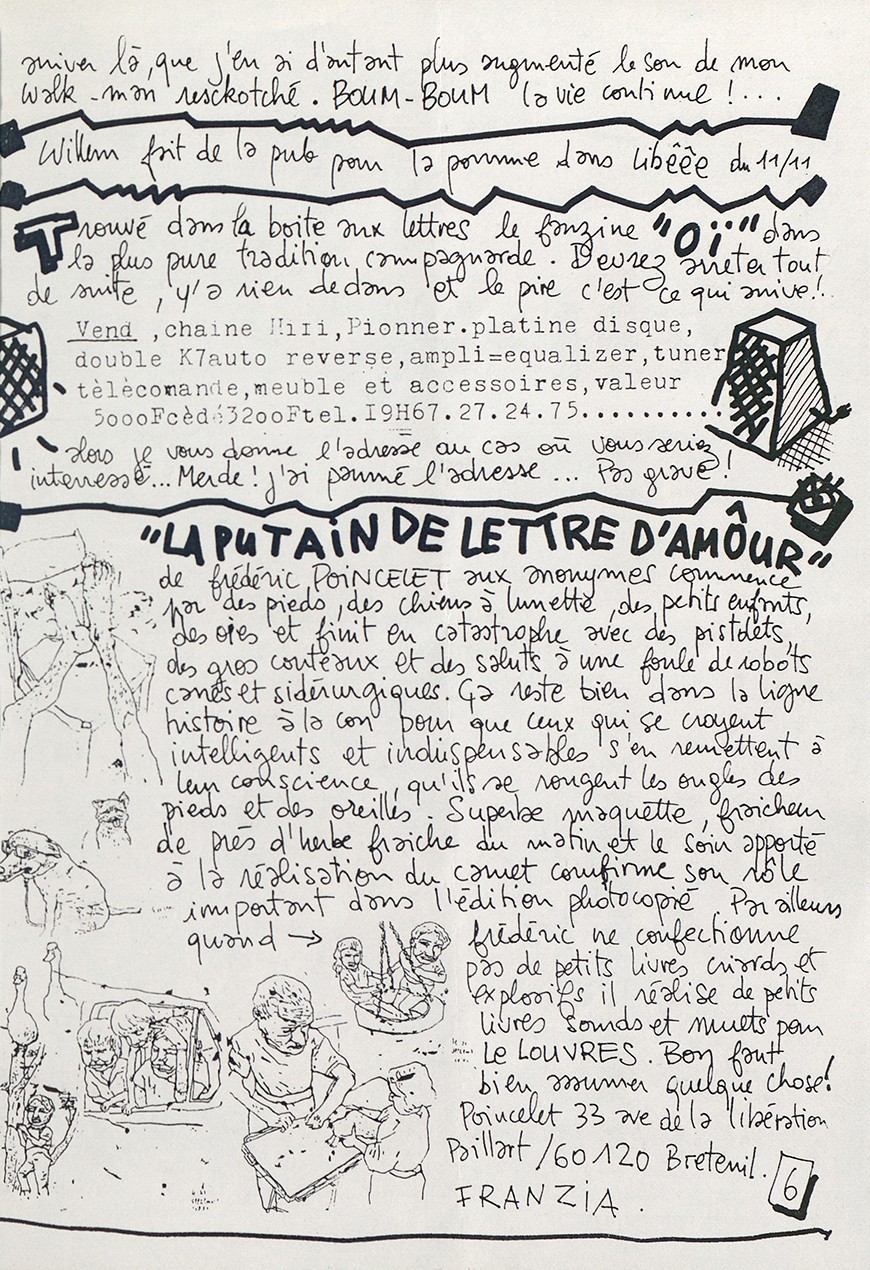 arriver là, que j'en ai d'autant plus augmenté le son de mon
walk-man resckotché. BOUM-BOUM la vie continue !...
Willem fait de la pub pour la pomme dans Libêêe du 11/11
Trouvé dans la boite aux lettres le fanzine "OÏ" dans
la plus pure tradition campagnarde. Devrez arreter tout
de suite, y'a rien dedans et le pire c'est ce qui arrive!..
Vend ,chaine Hifi,Pionner.platine disque,
double K7auto reverse,ampli=equalizer,tuner
tèlècomande,meuble et accessoires,valeur
5oooFcèdé32ooFtel.I9H67.27.24.75..........
Alors je vous donne l'adresse au cas où vous seriez
interressé... Merde! j'ai paumé l'adresse ... Pas grave!
"LA PUTAIN DE LETTRE D'AMÔUR"
de frédéric POINCELET aux anonymes commence
par des pieds, des chiens à lunette, des petits enfants,
des oies et finit en catastrophe avec des pistolets,
des gros couteaux et des saluts à une foule de robots
carrés et sidérurgiques. Ça reste bien dans la ligne
histoire à la con pour que ceux qui se croyent
intelligents et indispensables s'en remettent à
leur conscience, qu'ils se rongent les ongles des
pieds et des oreilles. Superbe maquette, fraicheur
de prés d'herbe fraiche du matin et le soin apporté
à la réalisation du carnet comfirme son rôle
important dans l'édition photocopié Par ailleurs
quand → frédéric ne confectionne
pas de petits livres criards et
explosifs il réalise de petits
livres sourds et muets pour
LE LOUVRES. Bon faut
bien assumer quelque chose!
Poincelet 33 ave de la libération
Paillart /60120 Breteuil.
FRANZIA.
6